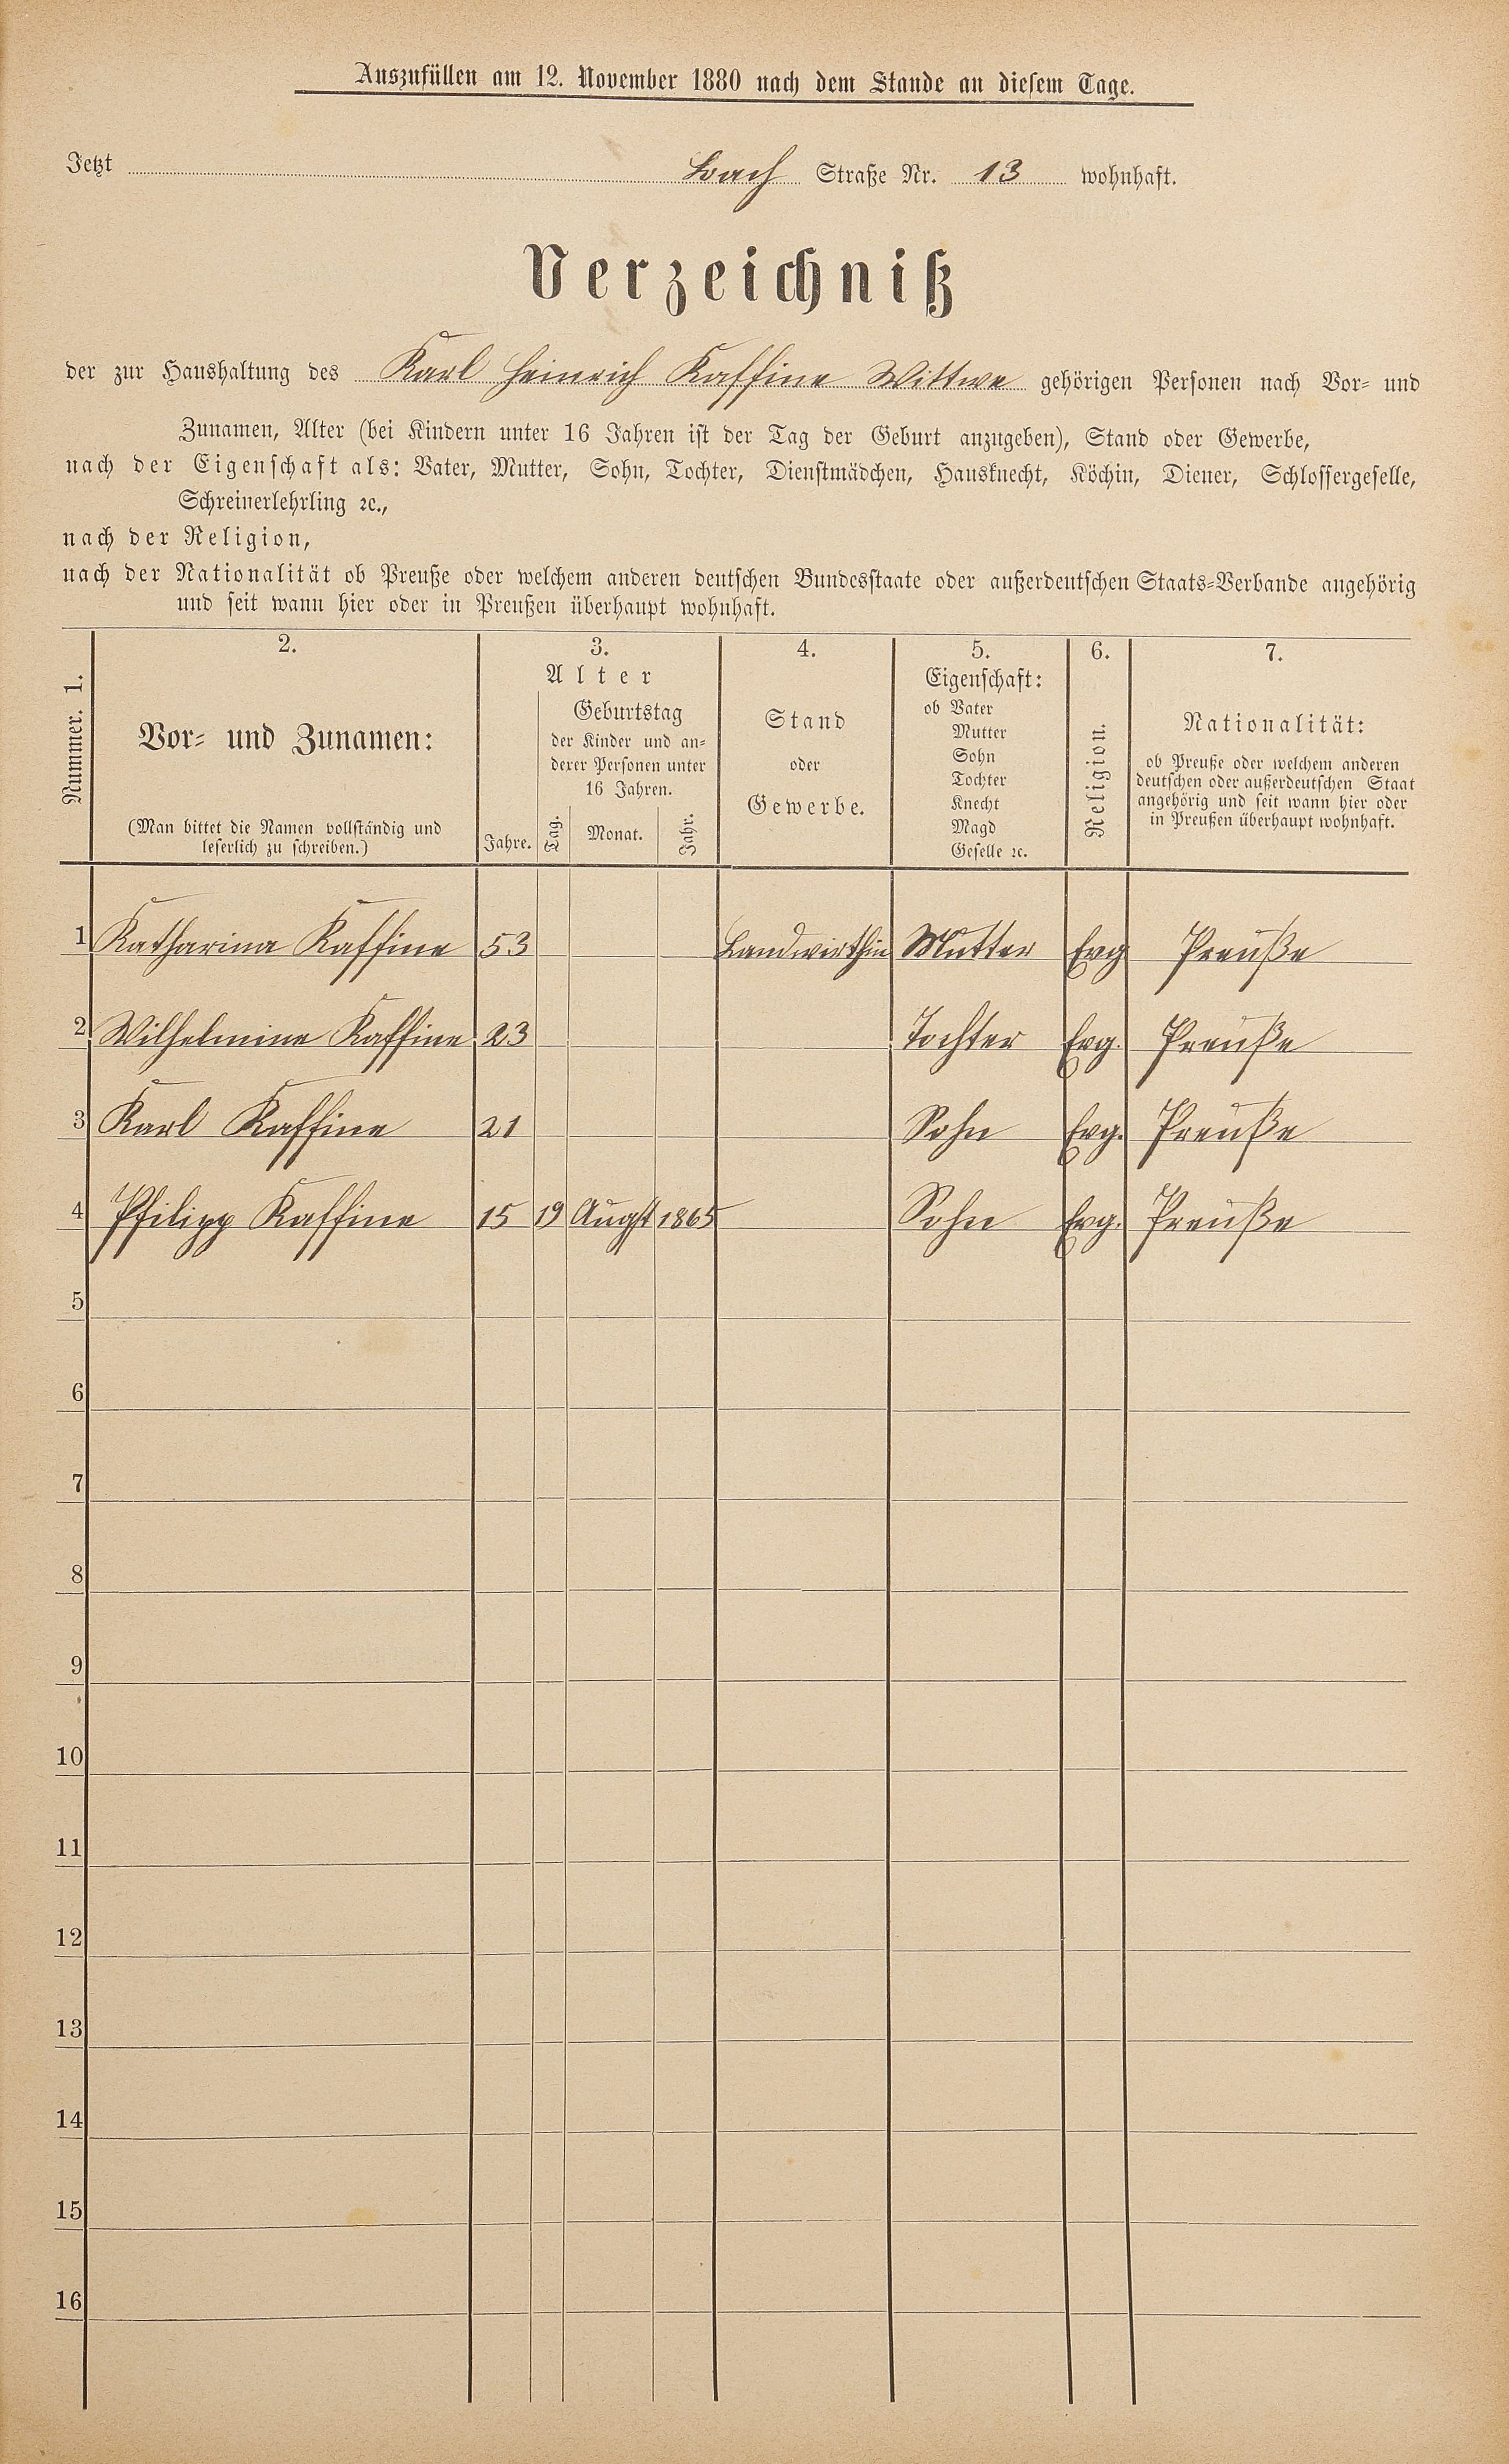 Auszufüllen am 12. November 1880 nach dem Stande an diesem Tage.
Jetzt Bach Straße Nr. 13 wohnhaft.
Verzeichniß
der zur Haushaltung des Karl Heinrich Kaffine Wittwe gehörigen Personen nach Vor- und
Zunamen, Alter (bei Kindern unter 16 Jahren ist der Tag der Geburt anzugeben), Stand oder Gewerbe,
nach der Eigenschaft als: Vater, Mutter, Sohn, Tochter, Dienstmädchen, Hausknecht, Köchin, Diener, Schlossergeselle,
Schreinerlehrling ꝛc.,
nach der Religion,
nach der Nationalität ob Preuße oder welchem anderen deutschen Bundesstaate oder außerdeutschen Staats-Verbande angehörig
und seit wann hier oder in Preußen überhaupt wohnhaft.
Nummer. 1.
2.
Vor- und Zunamen:
(Man bittet die Namen vollständig und
leserlich zu schreiben.)
3.
Alter
Jahre.
Geburtstag
der Kinder und an-
derer Personen unter
16 Jahren.
Tag.
Monat.
Jahr.
4.
Stand
oder
Gewerbe.
5.
Eigenschaft:
ob Vater
Mutter
Sohn
Tochter
Knecht
Magd
Geselle ꝛc.
6.
Religion.
7.
Nationalität:
ob Preuße oder welchem anderen
deutschen oder außerdeutschen Staat
angehörig und seit wann hier oder
in Preußen überhaupt wohnhaft.
1 Katharina Kaffine 53 Landwirthin Mutter Evg Preuße
2 Wilhelmine Kaffine 23 Tochter Evg. Preuße
3 Karl Kaffine 21 Sohn Evg. Preuße
4 Philipp Kaffine 15 19 Augst 1865 Sohn Evg. Preuße
5
6
7
8
9
10
11
12
13
14
15
16